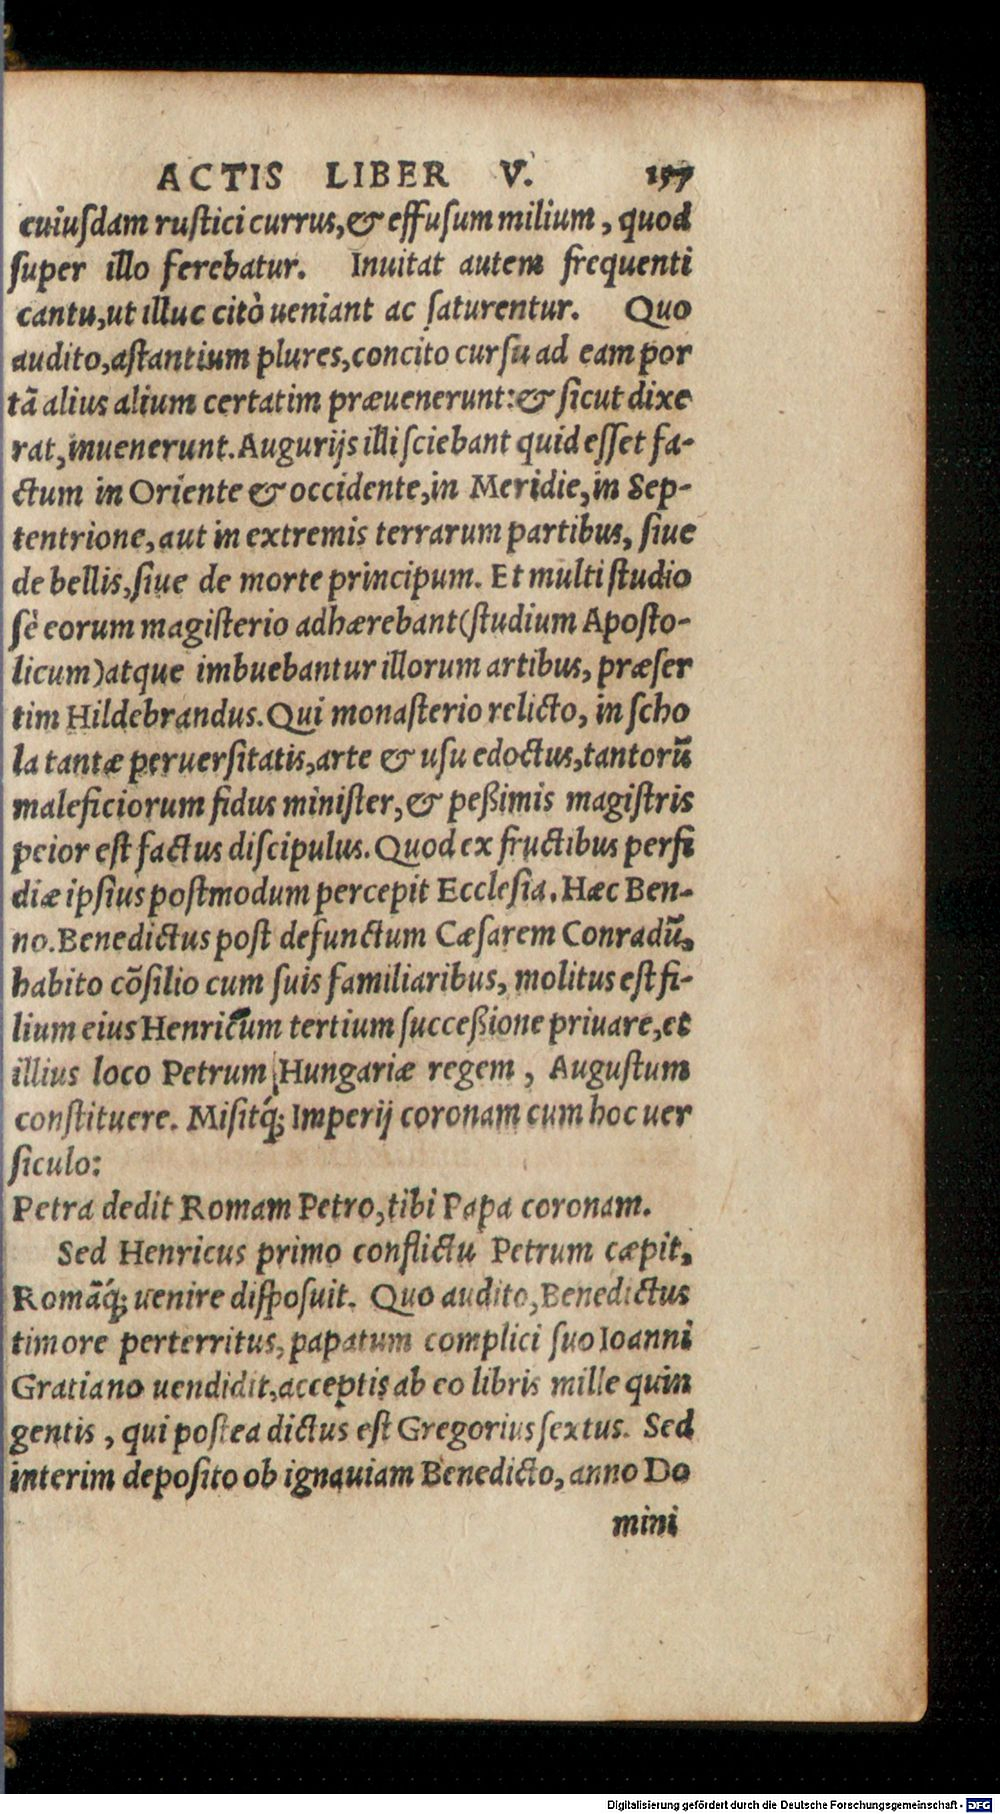 ACTIS LIBER V. 157
cuiuſdam ruſtici currus,& effuſum milium, quod
ſuper illo ferebatur. Inuitat autem frequenti
cantu,ut illuc citò ueniant ac ſaturentur. Quo
audito,aſtantium plures,concito curſu ad eam por
tã alius alium certatim præuenerunt:& ſicut dixe
rat,inuenerunt.Augurijs illi ſciebant quid eſſet fa-
ctum in Oriente & occidente,in Meridie,in Sep-
tentrione,aut in extremis terrarum partibus, ſiue
de bellis,ſiue de morte principum. Et multi ſtudio
ſè eorum magiſterio adhærebant(ſtudium Apoſto-
licum)atque imbuebantur illorum artibus, præſer
tim Hildebrandus.Qui monaſterio relicto, in ſcho
la tantæ peruerſitatis,arte & uſu edoctus,tantorũ
maleficiorum fidus miniſter,& peßimis magiſtris
peior eſt factus diſcipulus.Quod ex fructibus perfi
diæ ipſius poſtmodum percepit Eccleſia.Hæc Ben-
no.Benedictus poſt defunctum Cæſarem Conradũ,
habito cõſilio cum ſuis familiaribus, molitus eſt fi-
lium eius Henricum tertium ſucceßione priuare,et
illius loco Petrum Hungariæ regem, Auguſtum
conſtituere. Miſitq́; Imperij coronam cum hoc uer
ſiculo:
Petra dedit Romam Petro,tibi Papa coronam.
Sed Henricus primo conflictu Petrum cæpit,
Romãq́; uenire diſpoſuit. Quo audito,Benedictus
timore perterritus,papatum complici ſuo Ioanni
Gratiano uendidit,acceptis ab eo libris mille quin
gentis, qui poſtea dictus eſt Gregorius ſextus. Sed
interim depoſito ob ignauiam Benedicto, anno Do
mini
Digitalisierung gefördert durch die Deutsche Forschungsgemeinschaft - DFG